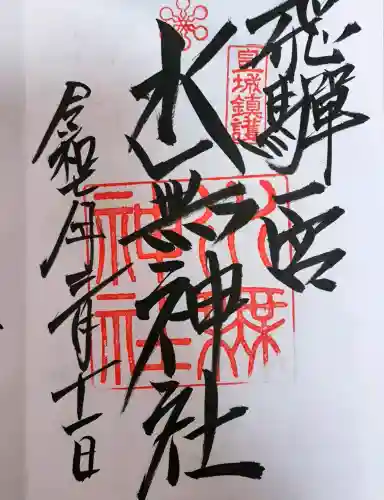 飛騨一宮
皇城鎮護
水無神社
水無神社
令和七年二月十一日